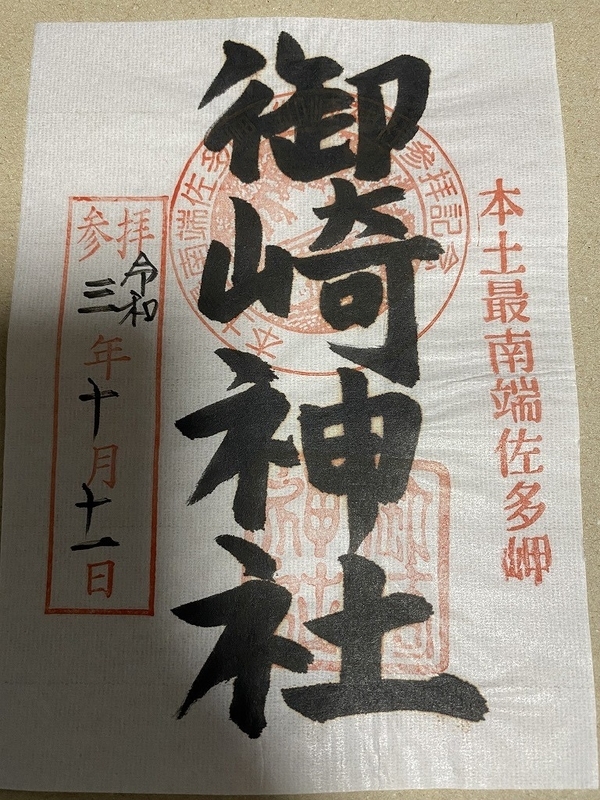 本土最南端佐多岬
御崎神社
参拝記念
南端佐多
参拝
令和
三年十月十一日
御崎
神社